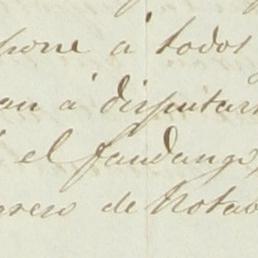 pone á todos
an á disputar
el fandango,
greso de Notab